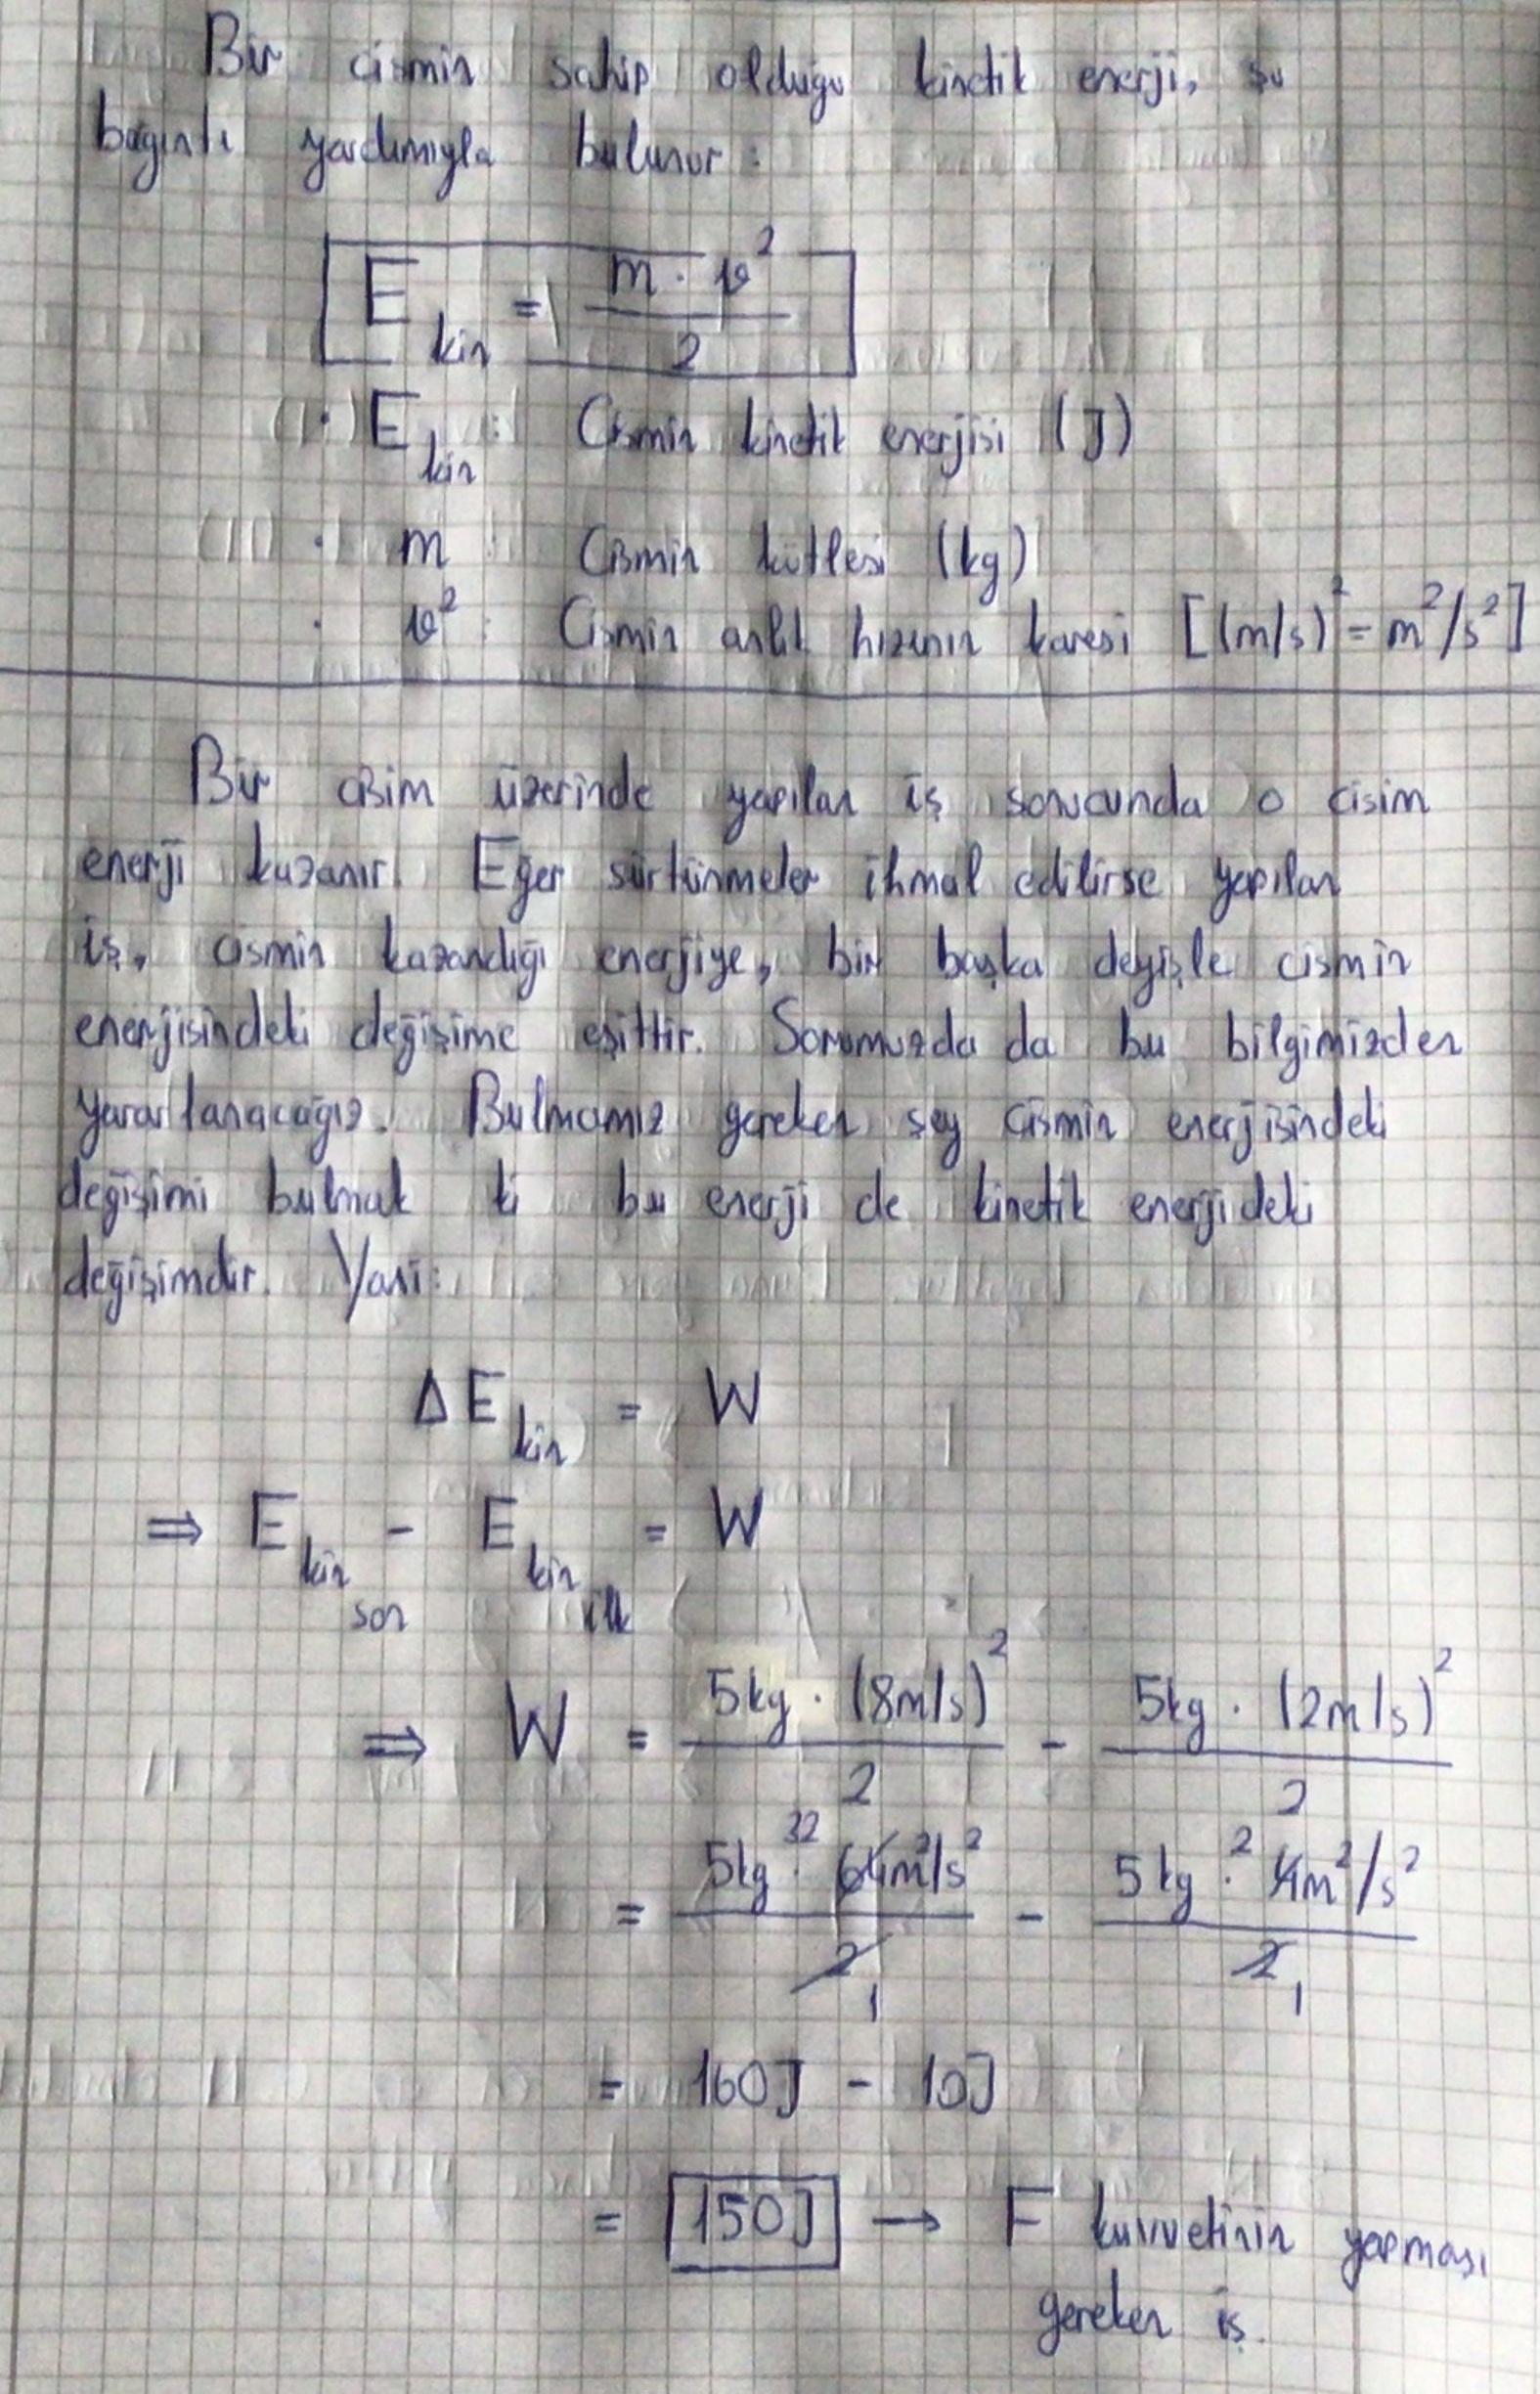 Bir cismin sahip olduğu kinetik enerji, şu
bağıntı yardımıyla bulunur:
E kin = m · v² / 2
· E kin : Cismin kinetik enerjisi (J)
· m : Cismin kütlesi (kg)
· v² : Cismin anlık hızının karesi [(m/s)² = m²/s²]
Bir cisim üzerinde yapılan iş sonucunda o cisim
enerji kazanır. Eğer sürtünmeler ihmal edilirse yapılan
iş, cismin kazandığı enerjiye, bir başka deyişle cismin
enerjisindeki değişime eşittir. Sorumuzda da bu bilgimizden
yararlanacağız. Bulmamız gereken şey cismin enerjisindeki
değişimi bulmak ki bu enerji de kinetik enerjideki
değişimdir. Yani:
ΔE kin = W
⇒ E kin son - E kin ilk = W
⇒ W = 5kg · (8m/s)² / 2 - 5kg · (2m/s)² / 2
= 5kg · 32 64m²/s² / 2 1 - 5kg · 2 4m²/s² / 2 1
= 160J - 10J
= 150J → F kuvvetinin yapması
gereken iş.